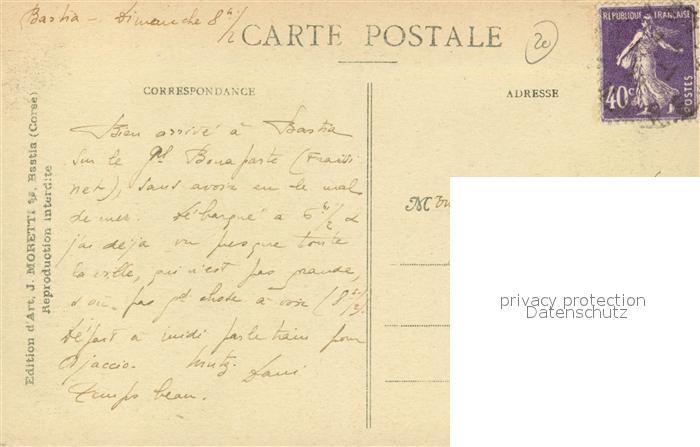 Bastia – Dimanche 8h 1/2
CARTE POSTALE
20
RÉPUBLIQUE FRANÇAISE
40c
POSTES
CORRESPONDANCE
ADRESSE
Bien arrivé à Bastia
sur le Gl Bonaparte (Fraissi
net), sans avoir eu le mal
de mer. Débarqué à 6h 1/2 &
j'ai déjà vu presque toute
la ville, qui n'est pas grande,
d'où pas gd chose à voir (8h 1/2).
Départ à midi par le train pour
Ajaccio.
Temps beau.
M
privacy protection
Datenschutz
Edition d'Art, J. MORETTI, Bastia (Corse)
Reproduction interdite